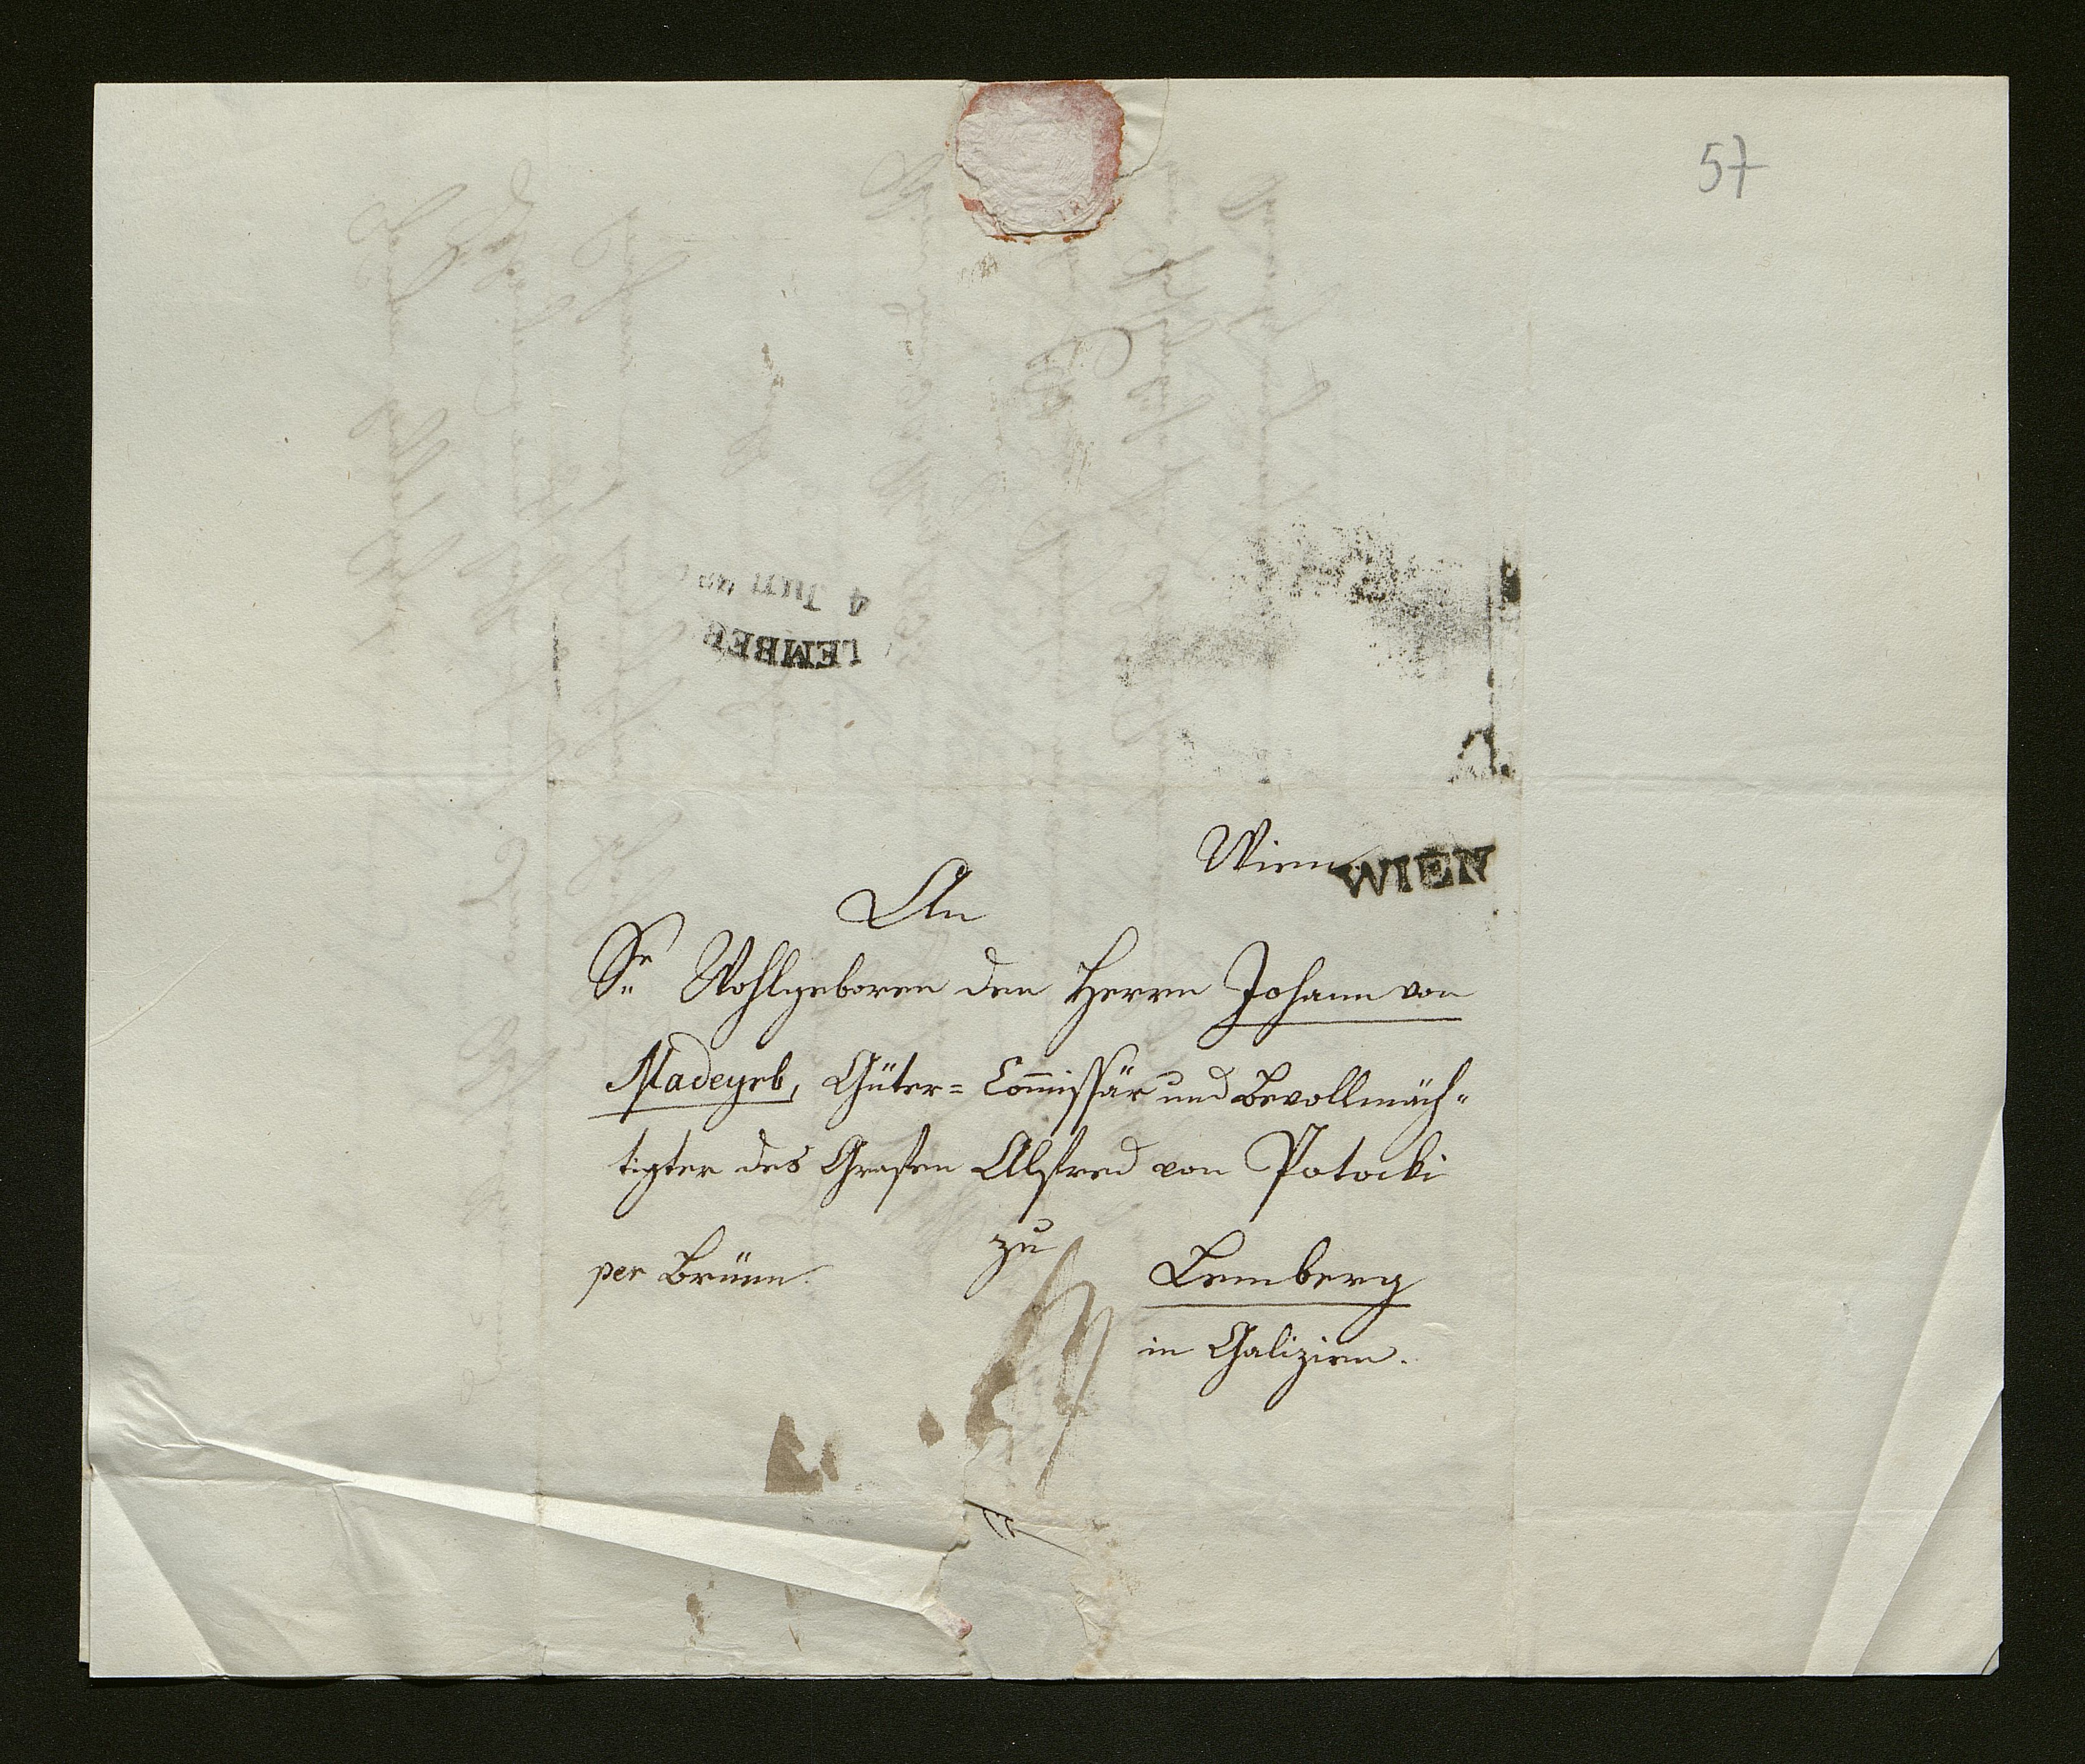 57
4 JUN
LEMBER
Wien WIEN
An
Sr Wohlgeboren den Herrn Johann von
Madeyrb, Güter= Com̅issär und Bevollmäch=
tigter des Grafen Alfred von Potocki
zu
per Brünn. Lemberg
in Galizien.